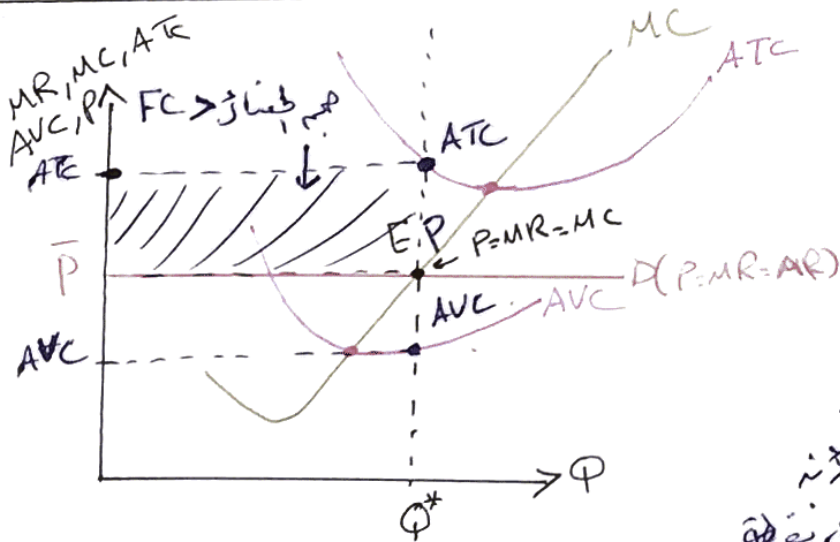 MR, MC, ATC
AVC, P
FC > حجم الخسائر
MC
ATC
ATC
ATC
E.P
P=MR=MC
P̅
D(P=MR=AR)
AVC
AVC
AVC
Q
Q*
نقطة